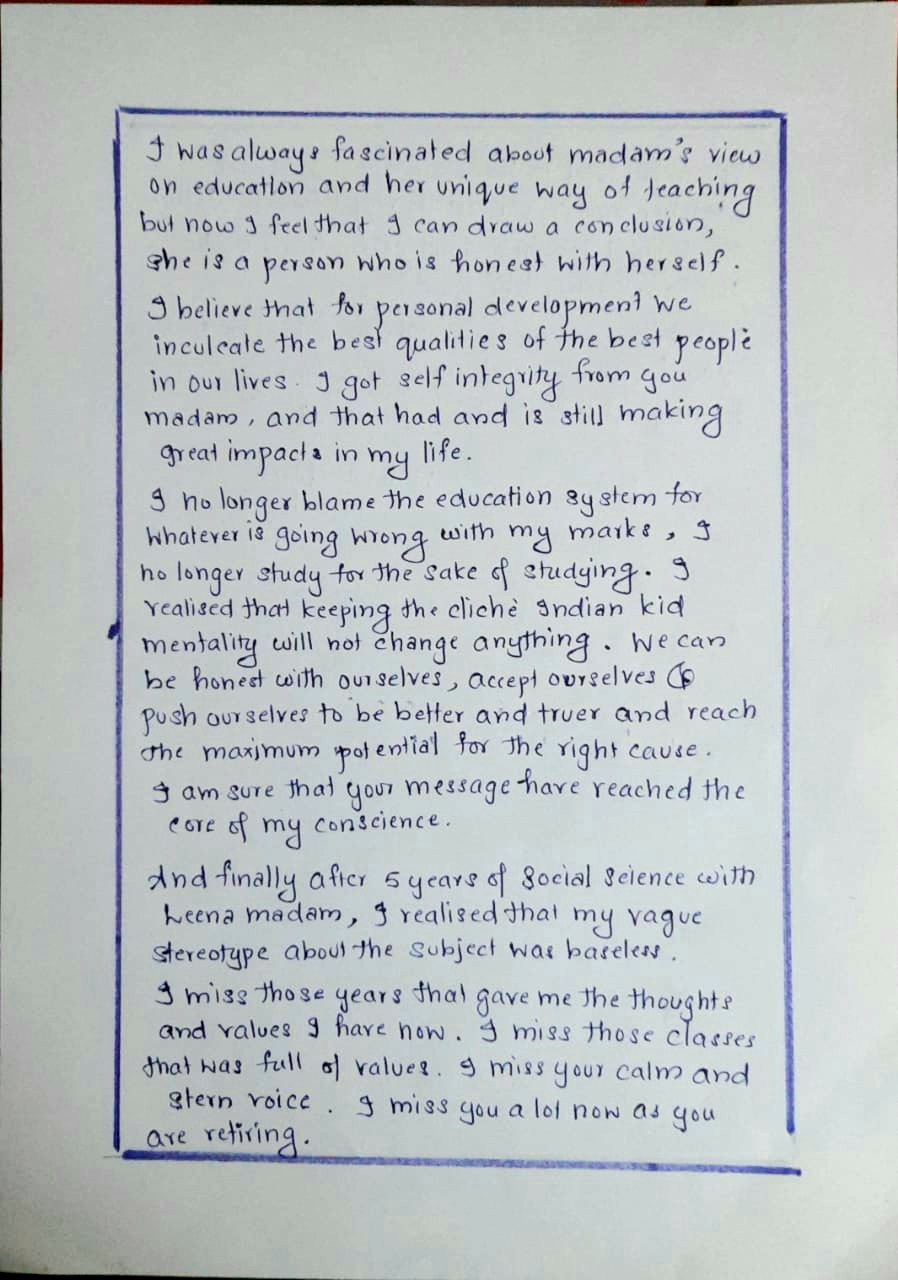 I was always fascinated about madam's view
on education and her unique way of teaching
but now I feel that I can draw a conclusion,
she is a person who is honest with herself.
I believe that for personal development we
inculcate the best qualities of the best people
in our lives. I got self integrity from you
madam, and that had and is still making
great impacts in my life.
I no longer blame the education system for
whatever is going wrong with my marks, I
no longer study for the sake of studying. I
realised that keeping the clichè Indian kid
mentality will not change anything. We can
be honest with ourselves, accept ourselves &
push ourselves to be better and truer and reach
the maximum potential for the right cause.
I am sure that your message have reached the
core of my conscience.
And finally after 5 years of Social Science with
Leena madam, I realised that my vague
stereotype about the subject was baseless.
I miss those years that gave me the thoughts
and values I have now. I miss those classes
that was full of values. I miss your calm and
stern voice. I miss you a lot now as you
are retiring.